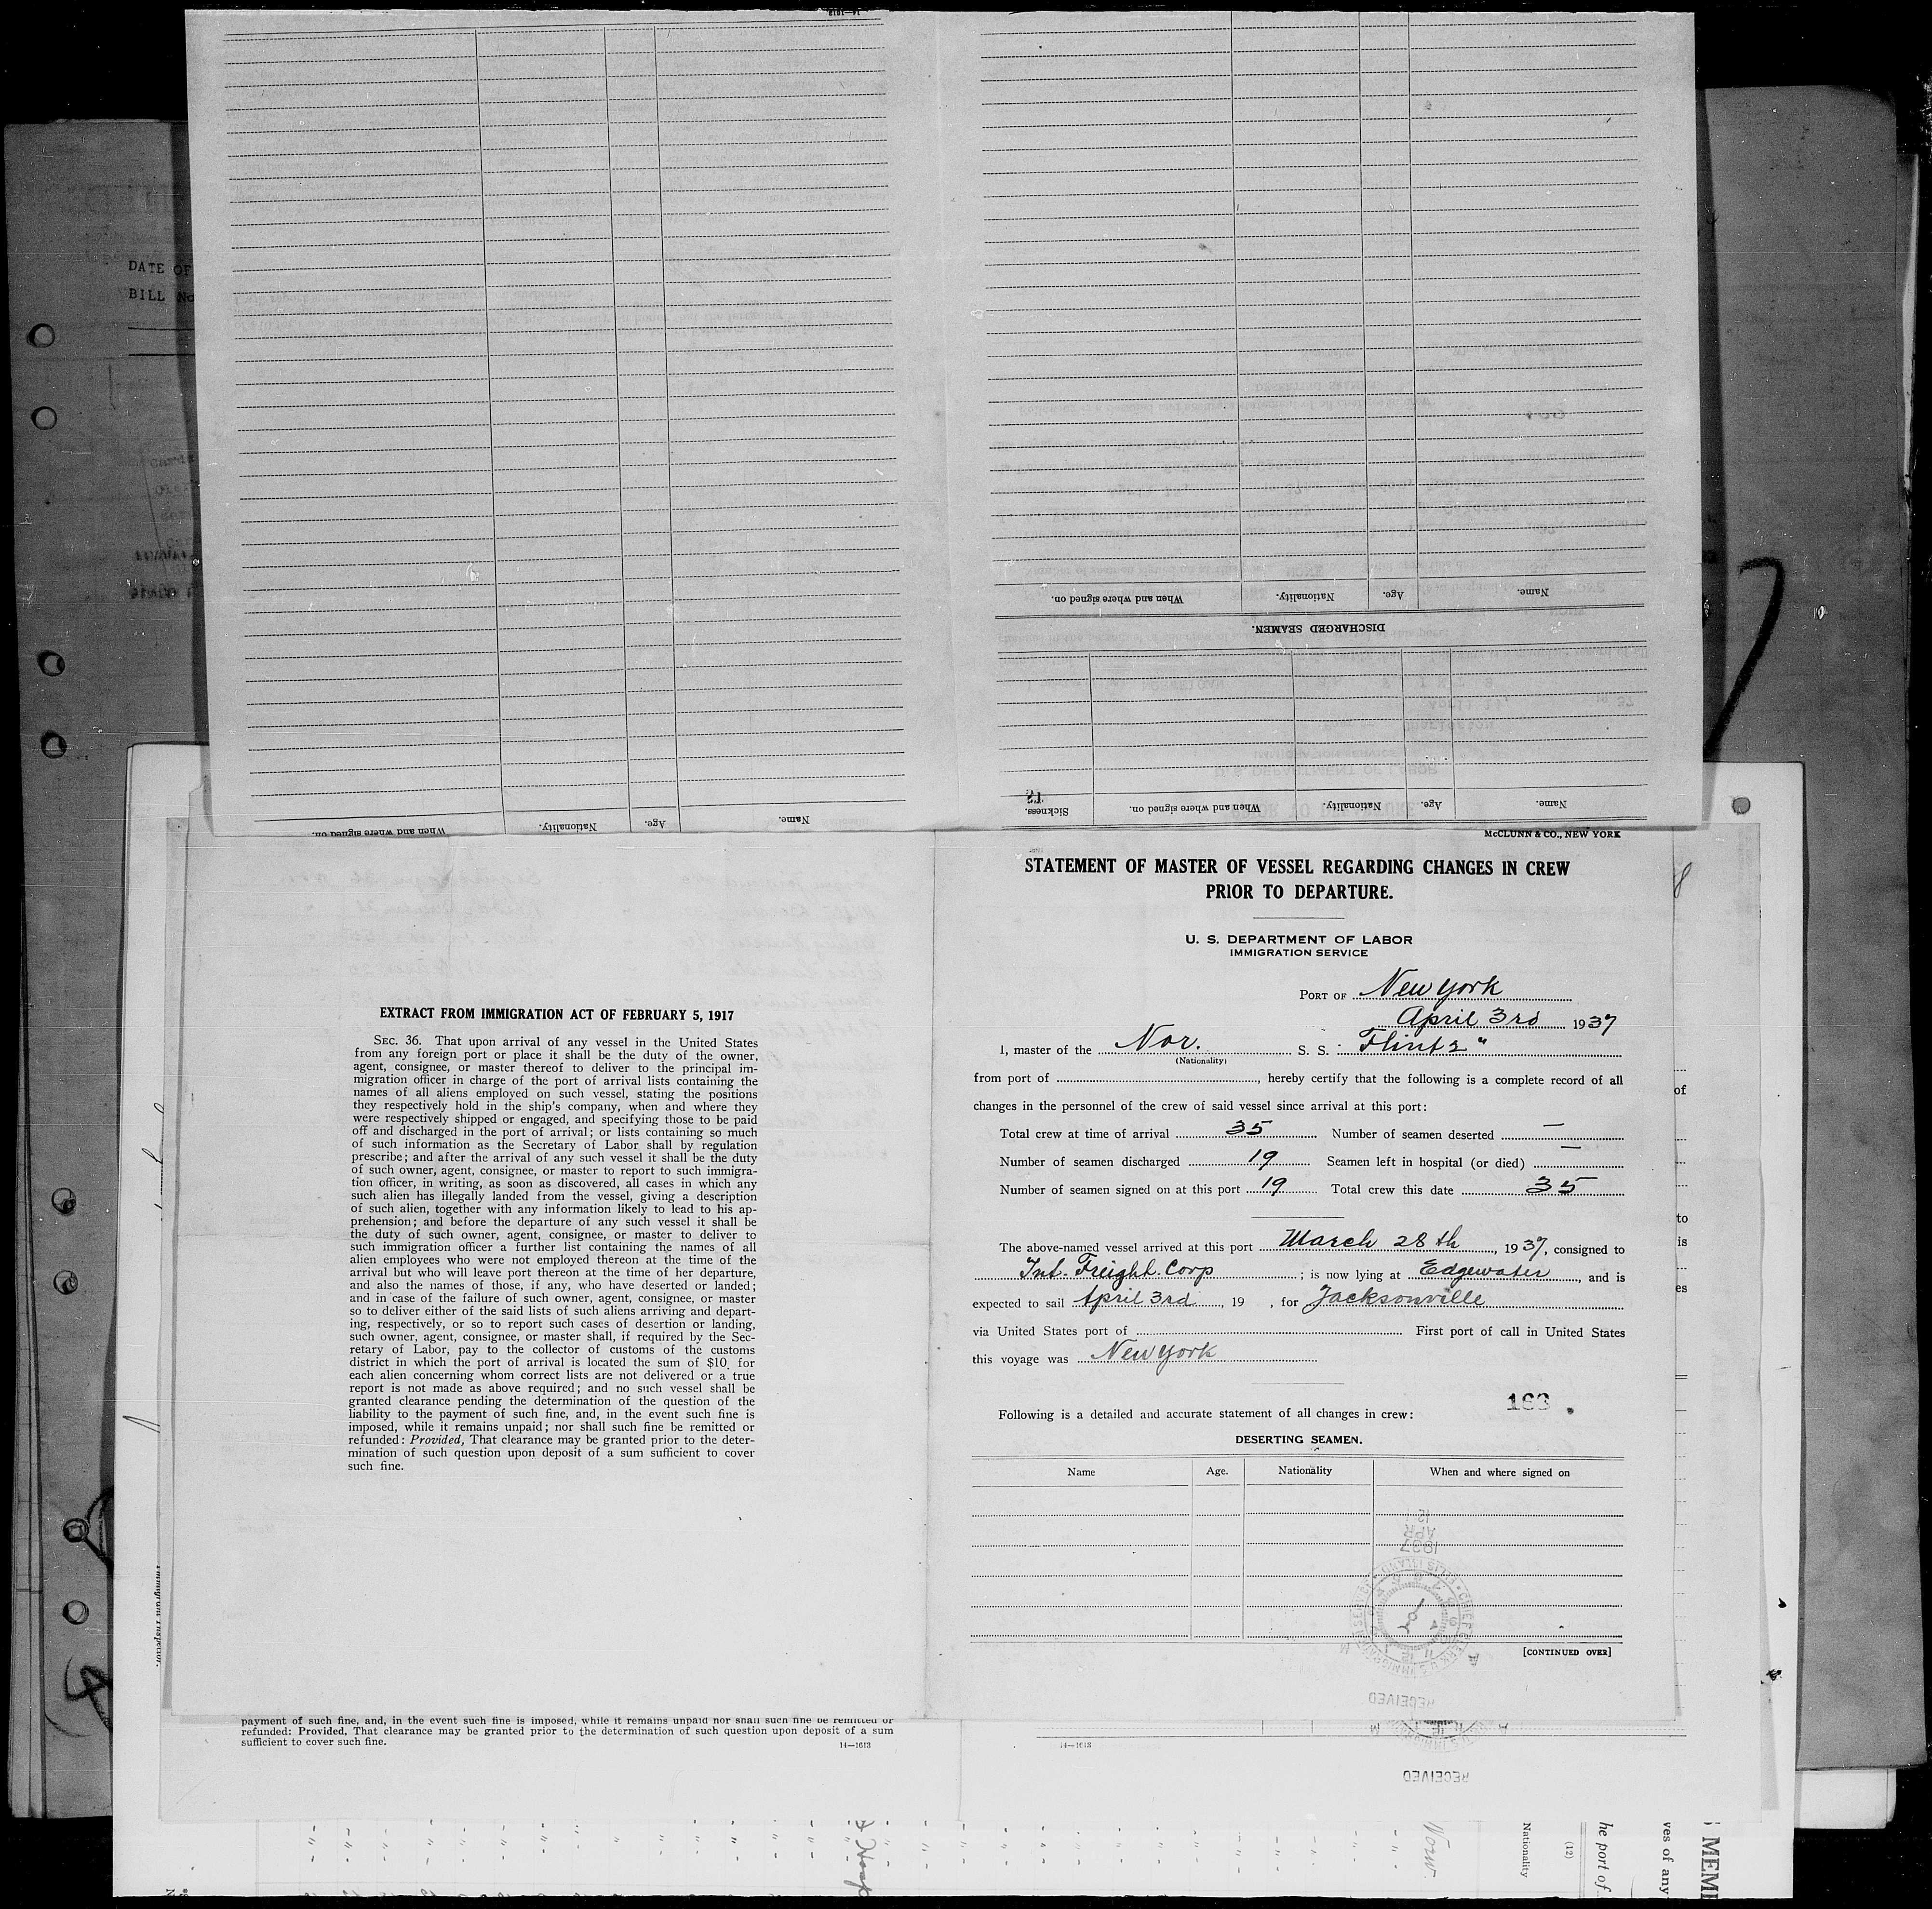 DATE OF
BILL No
When and where signed on.
Nationality.
Age.
Name.
When and where signed on.
Nationality.
Age.
Name.
DISCHARGED SEAMEN.
Sickness.
When and where signed on.
Nationality.
Age.
Name.
McCLUNN & CO., NEW YORK
STATEMENT OF MASTER OF VESSEL REGARDING CHANGES IN CREW
PRIOR TO DEPARTURE.
U. S. DEPARTMENT OF LABOR
IMMIGRATION SERVICE
PORT OF New York
April 3rd 1937
I, master of the Nor. S. S. "Flint 2"
(Nationality)
from port of , hereby certify that the following is a complete record of all
changes in the personnel of the crew of said vessel since arrival at this port:
Total crew at time of arrival 35 Number of seamen deserted —
Number of seamen discharged 19 Seamen left in hospital (or died) —
Number of seamen signed on at this port 19 Total crew this date 35
The above-named vessel arrived at this port March 28th, 1937, consigned to
Int. Freight. Corp ; is now lying at Edgewater, and is
expected to sail April 3rd, 19 , for Jacksonville
via United States port of First port of call in United States
this voyage was New York
163
Following is a detailed and accurate statement of all changes in crew:
DESERTING SEAMEN.
Name Age. Nationality When and where signed on
1937
APR
RECEIVED
[CONTINUED OVER]
EXTRACT FROM IMMIGRATION ACT OF FEBRUARY 5, 1917
SEC. 36. That upon arrival of any vessel in the United States
from any foreign port or place it shall be the duty of the owner,
agent, consignee, or master thereof to deliver to the principal im-
migration officer in charge of the port of arrival lists containing the
names of all aliens employed on such vessel, stating the positions
they respectively hold in the ship's company, when and where they
were respectively shipped or engaged, and specifying those to be paid
off and discharged in the port of arrival; or lists containing so much
of such information as the Secretary of Labor shall by regulation
prescribe; and after the arrival of any such vessel it shall be the duty
of such owner, agent, consignee, or master to report to such immigra-
tion officer, in writing, as soon as discovered, all cases in which any
such alien has illegally landed from the vessel, giving a description
of such alien, together with any information likely to lead to his ap-
prehension; and before the departure of any such vessel it shall be
the duty of such owner, agent, consignee, or master to deliver to
such immigration officer a further list containing the names of all
alien employees who were not employed thereon at the time of the
arrival but who will leave port thereon at the time of her departure,
and also the names of those, if any, who have deserted or landed;
and in case of the failure of such owner, agent, consignee, or master
so to deliver either of the said lists of such aliens arriving and depart-
ing, respectively, or so to report such cases of desertion or landing,
such owner, agent, consignee, or master shall, if required by the Sec-
retary of Labor, pay to the collector of customs of the customs
district in which the port of arrival is located the sum of $10 for
each alien concerning whom correct lists are not delivered or a true
report is not made as above required; and no such vessel shall be
granted clearance pending the determination of the question of the
liability to the payment of such fine, and, in the event such fine is
imposed, while it remains unpaid; nor shall such fine be remitted or
refunded: Provided, That clearance may be granted prior to the deter-
mination of such question upon deposit of a sum sufficient to cover
such fine.
payment of such fine, and, in the event such fine is imposed, while it remains unpaid nor shall such fine be remitted or
refunded: Provided, That clearance may be granted prior to the determination of such question upon deposit of a sum
sufficient to cover such fine.
14—1613
14—1613
RECEIVED
of
to
is
es
Norw.
Nationality
(12)
he port of
ves of any
MEM